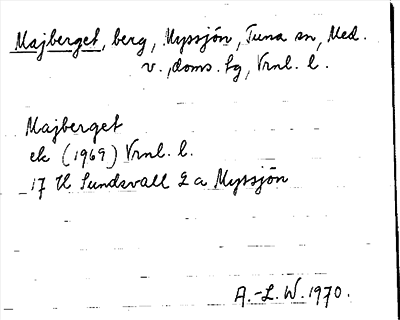 Majberget, berg, Myssjön, Tuna sn, Med.
v., doms. fg, Vrnl. l.
Majberget
ek (1969) Vrnl. l.
17 H Sundsvall 2 a Myssjön
A.-L. W. 1970.